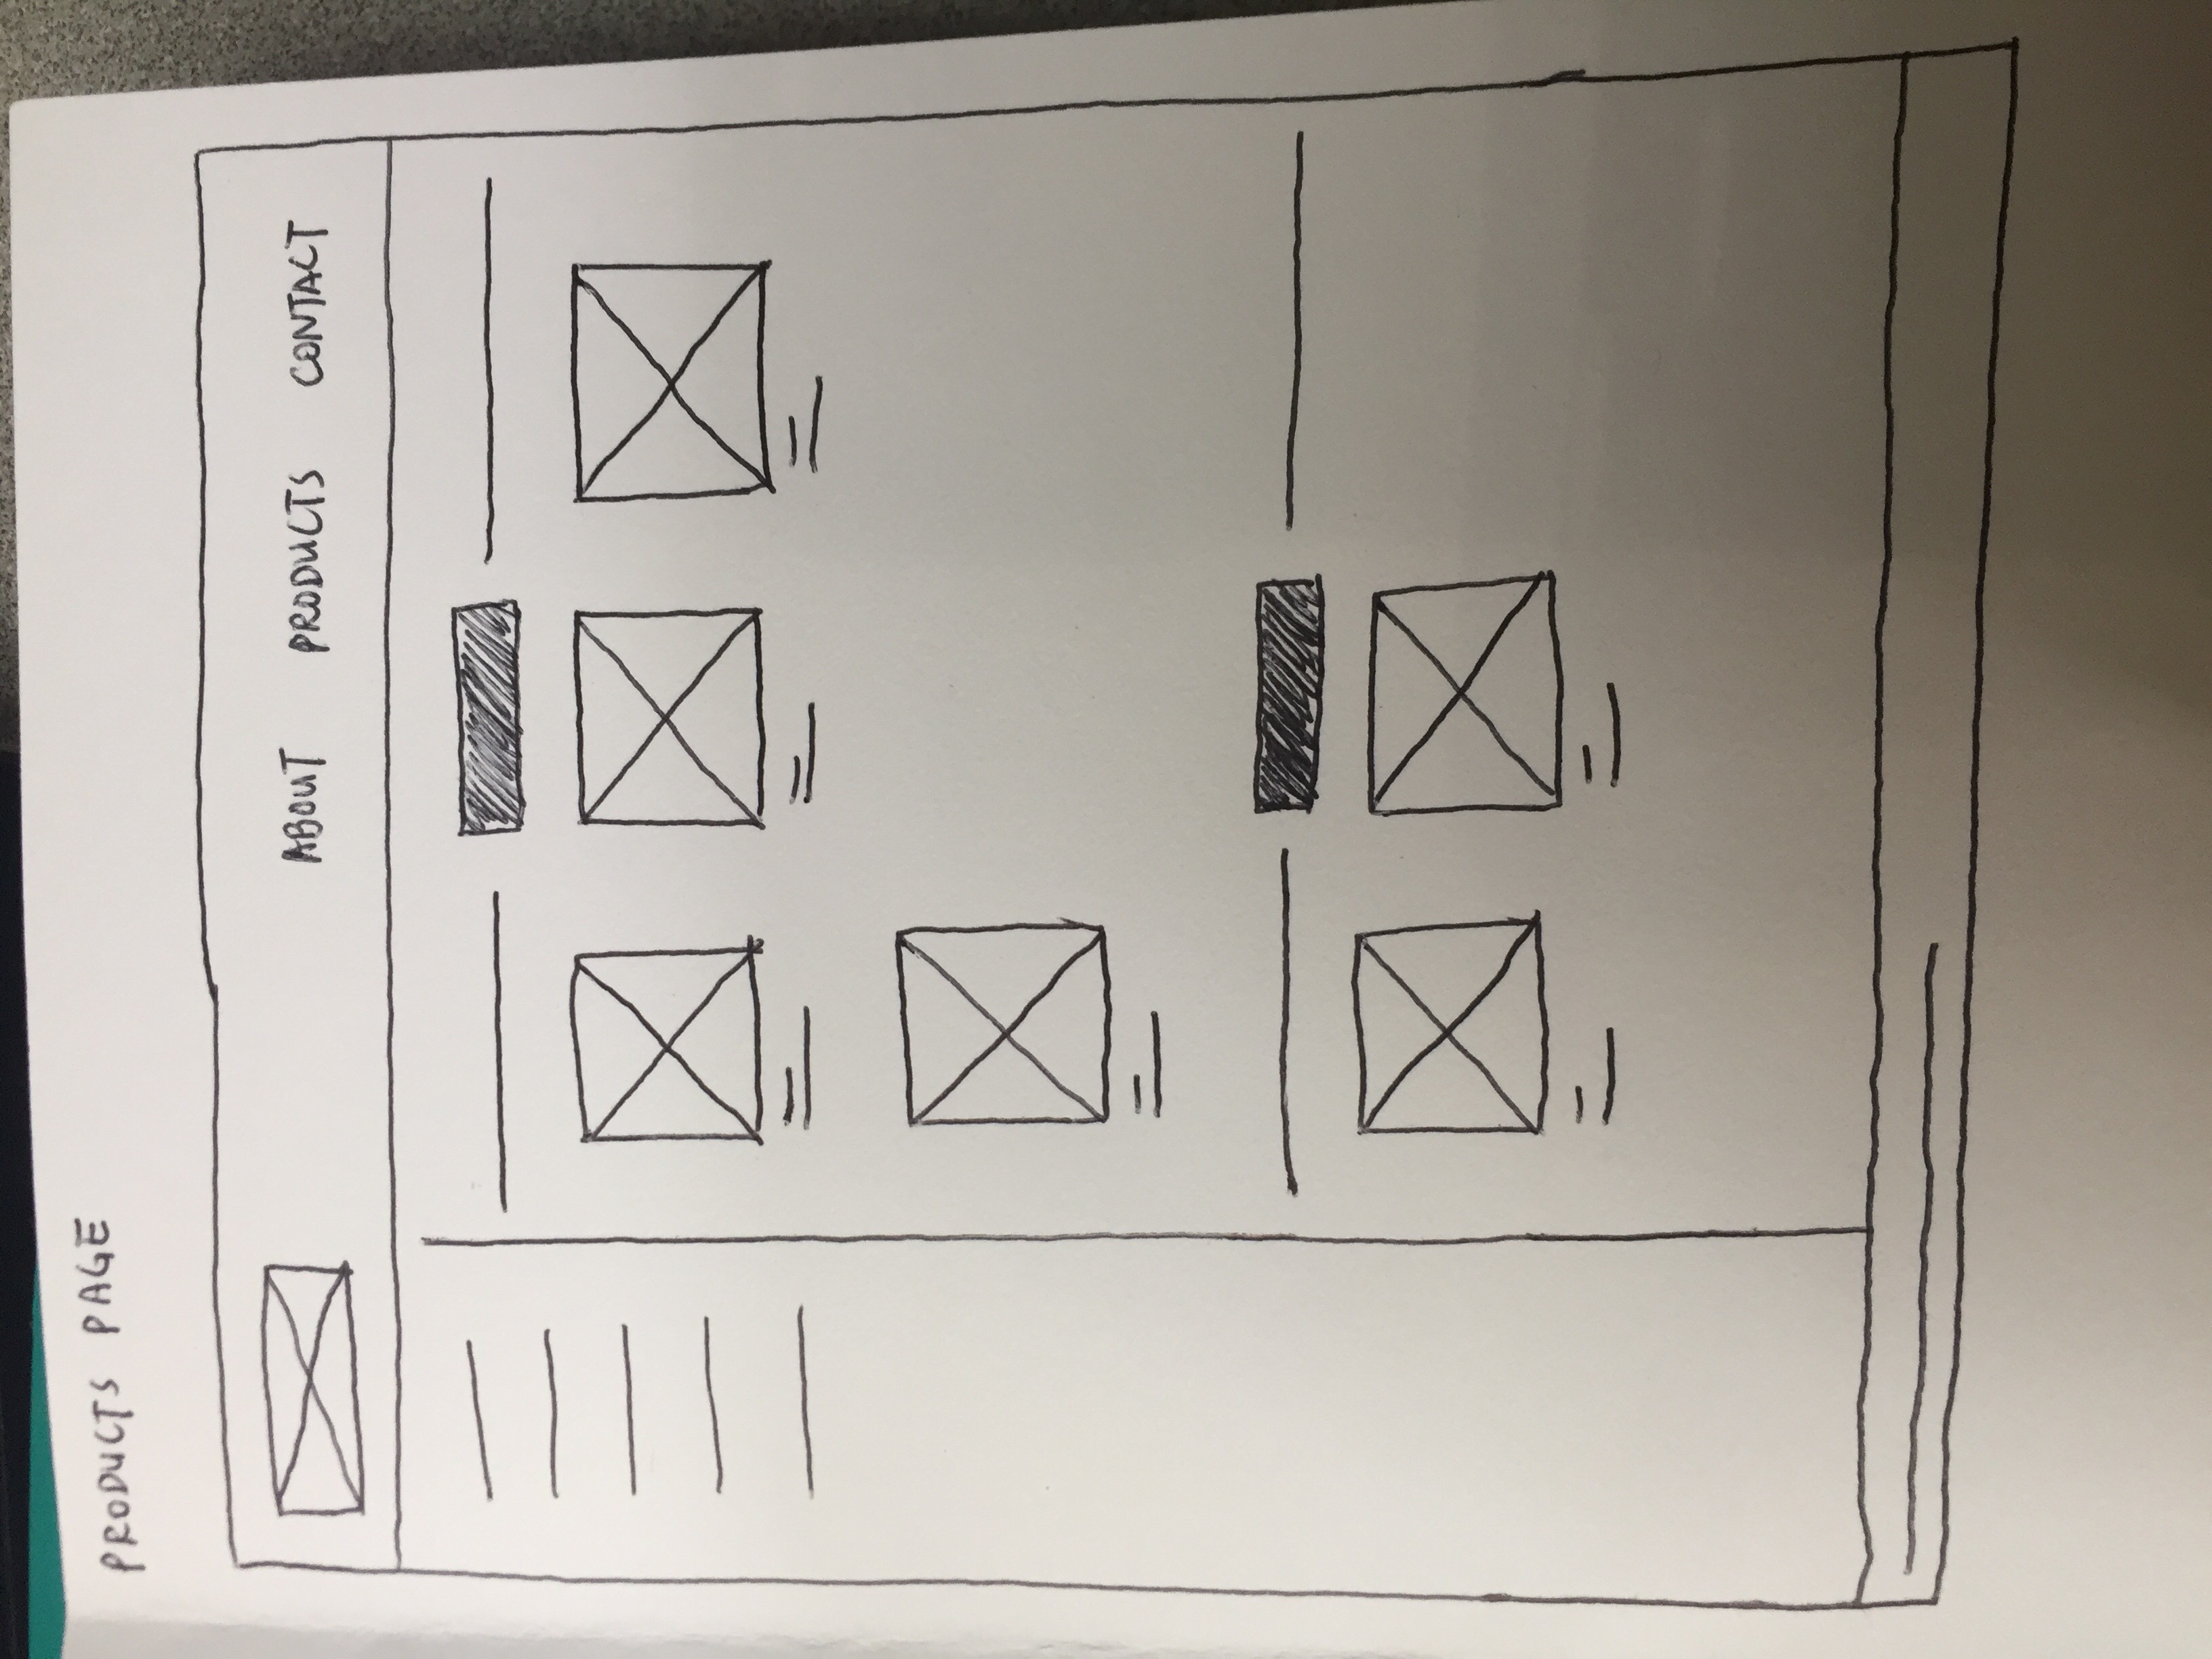 PRODUCTS PAGE
ABOUT PRODUCTS CONTACT